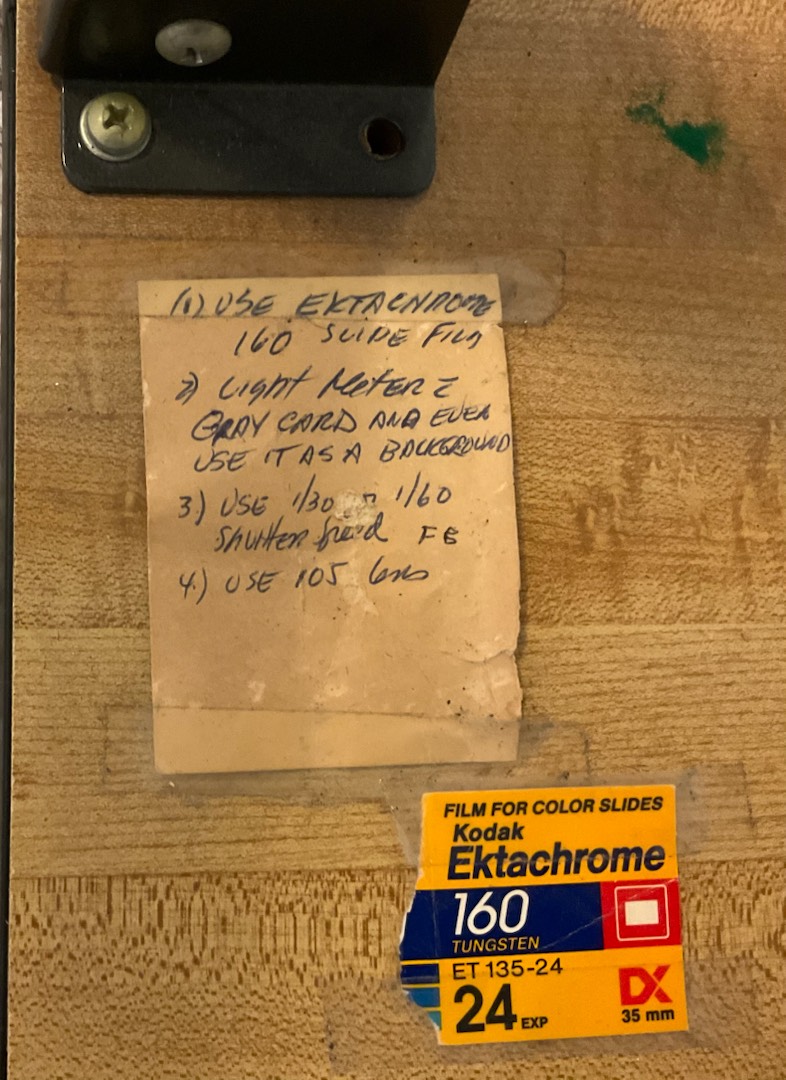 (1) USE EKTACHROME
160 SLIDE FILM
2) Light Meter
GRAY CARD AND EVEN
USE IT AS A BACKGROUND
3) USE 1/30 1/60
Shutter Speed
4.) USE 105 lens
FILM FOR COLOR SLIDES
Kodak
Ektachrome
160
TUNGSTEN
ET 135-24
24 EXP
DX
35 mm